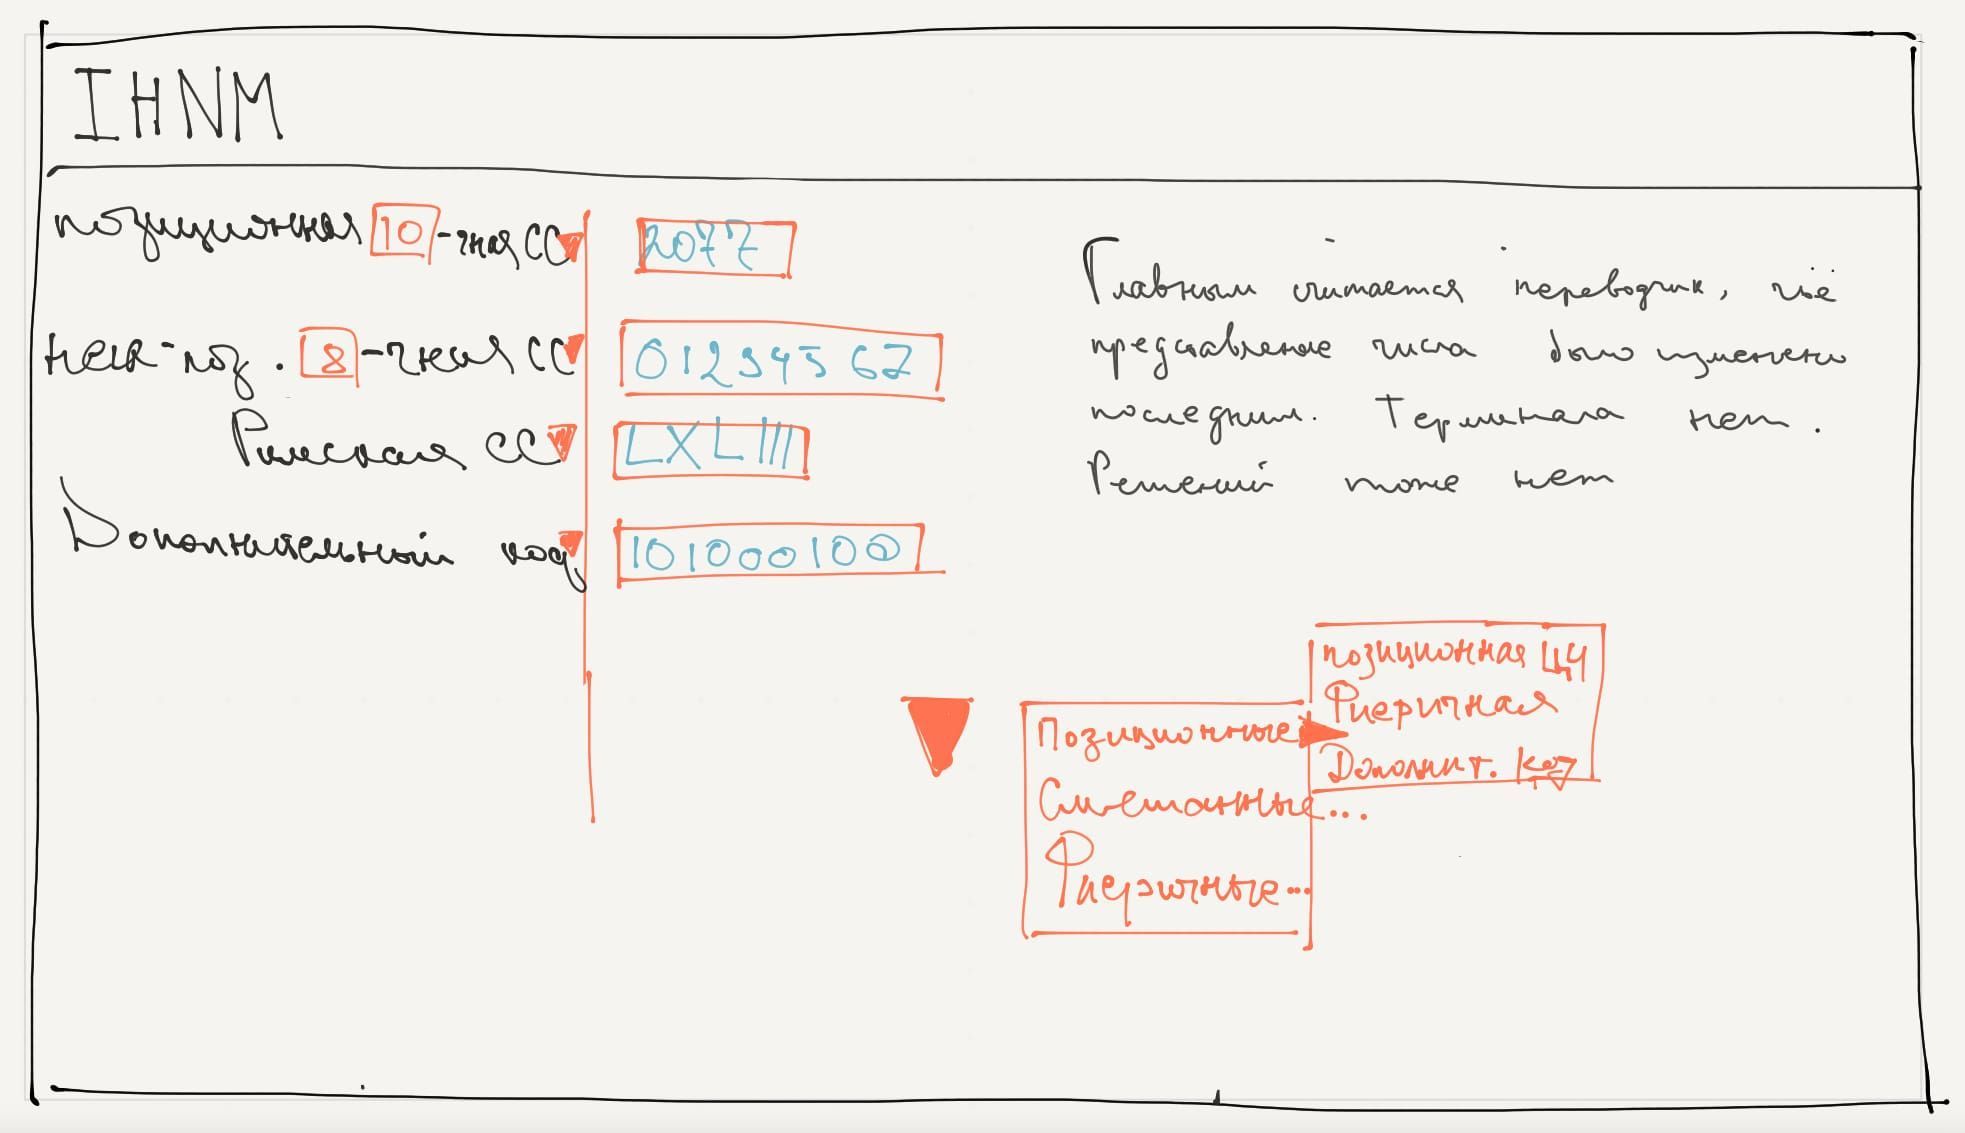 IHNM
позиционная 10-чная СС
2077
-поз. 8-чная СС
01234567
Римская СС
LXLIII
Дополнительный код
101000100
Главным считается переводчик, чьё
представление числа было изменено
последним. Терминала нет.
Решений тоже нет
позиционная ЦЧ
Фиеричная
Дополнит. код
Позиционные
Смешанные...
Фиеричные...